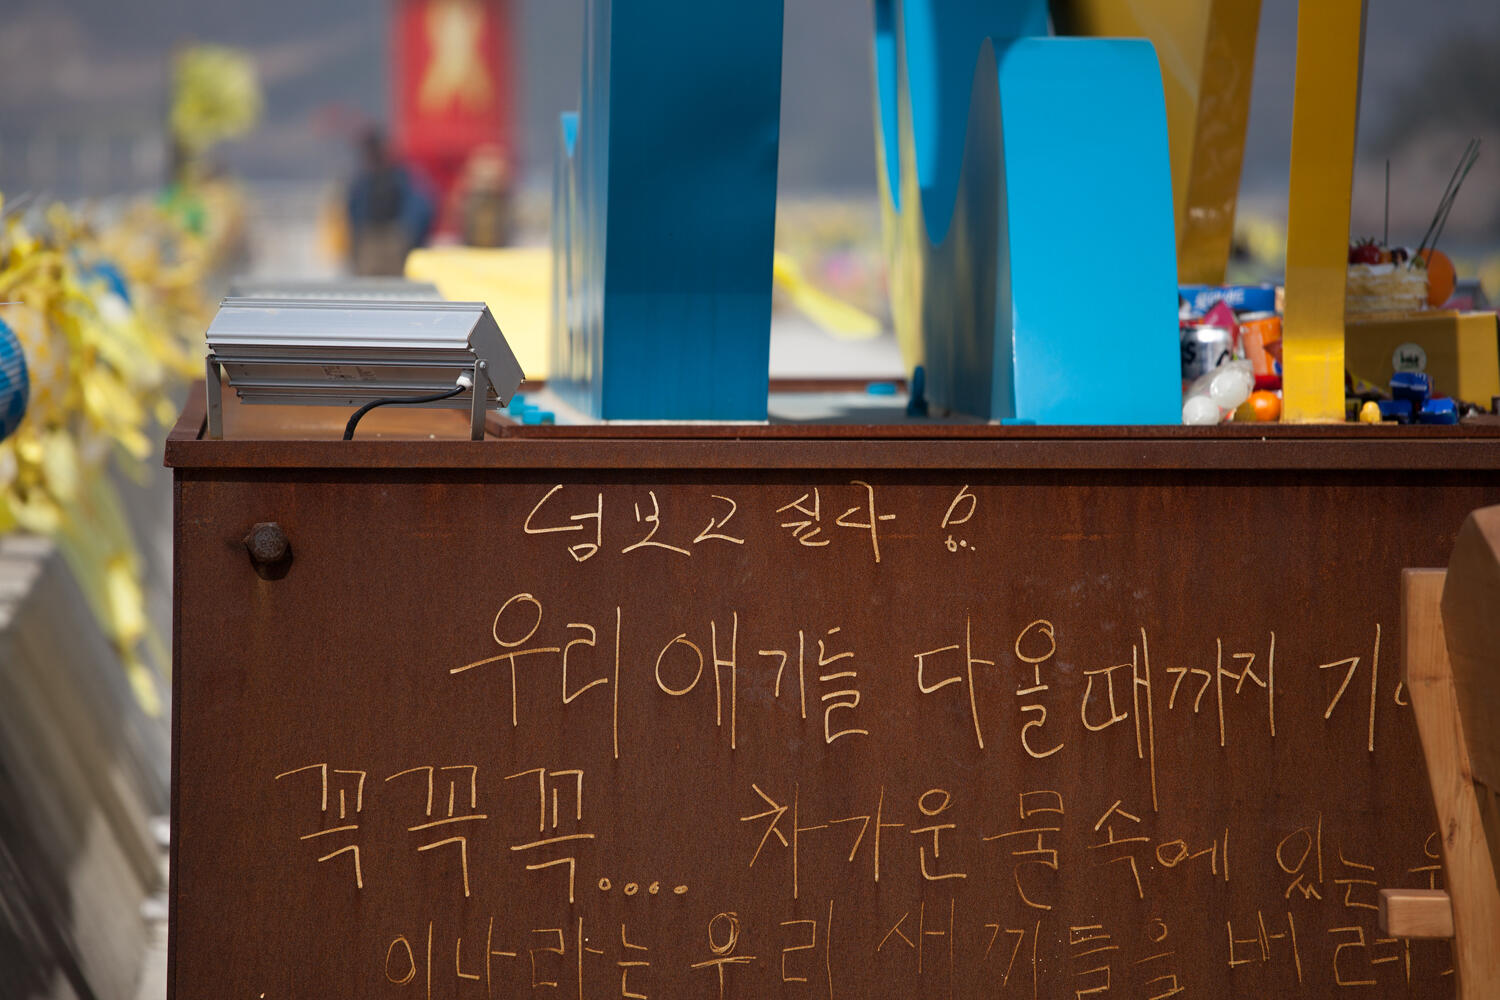 넘 보고 싶다 o..
우리 애기들 다 올때까지
꼭 꼭 꼭.... 차가운 물 속에 있는
이나라는 우리 새끼들을 버려